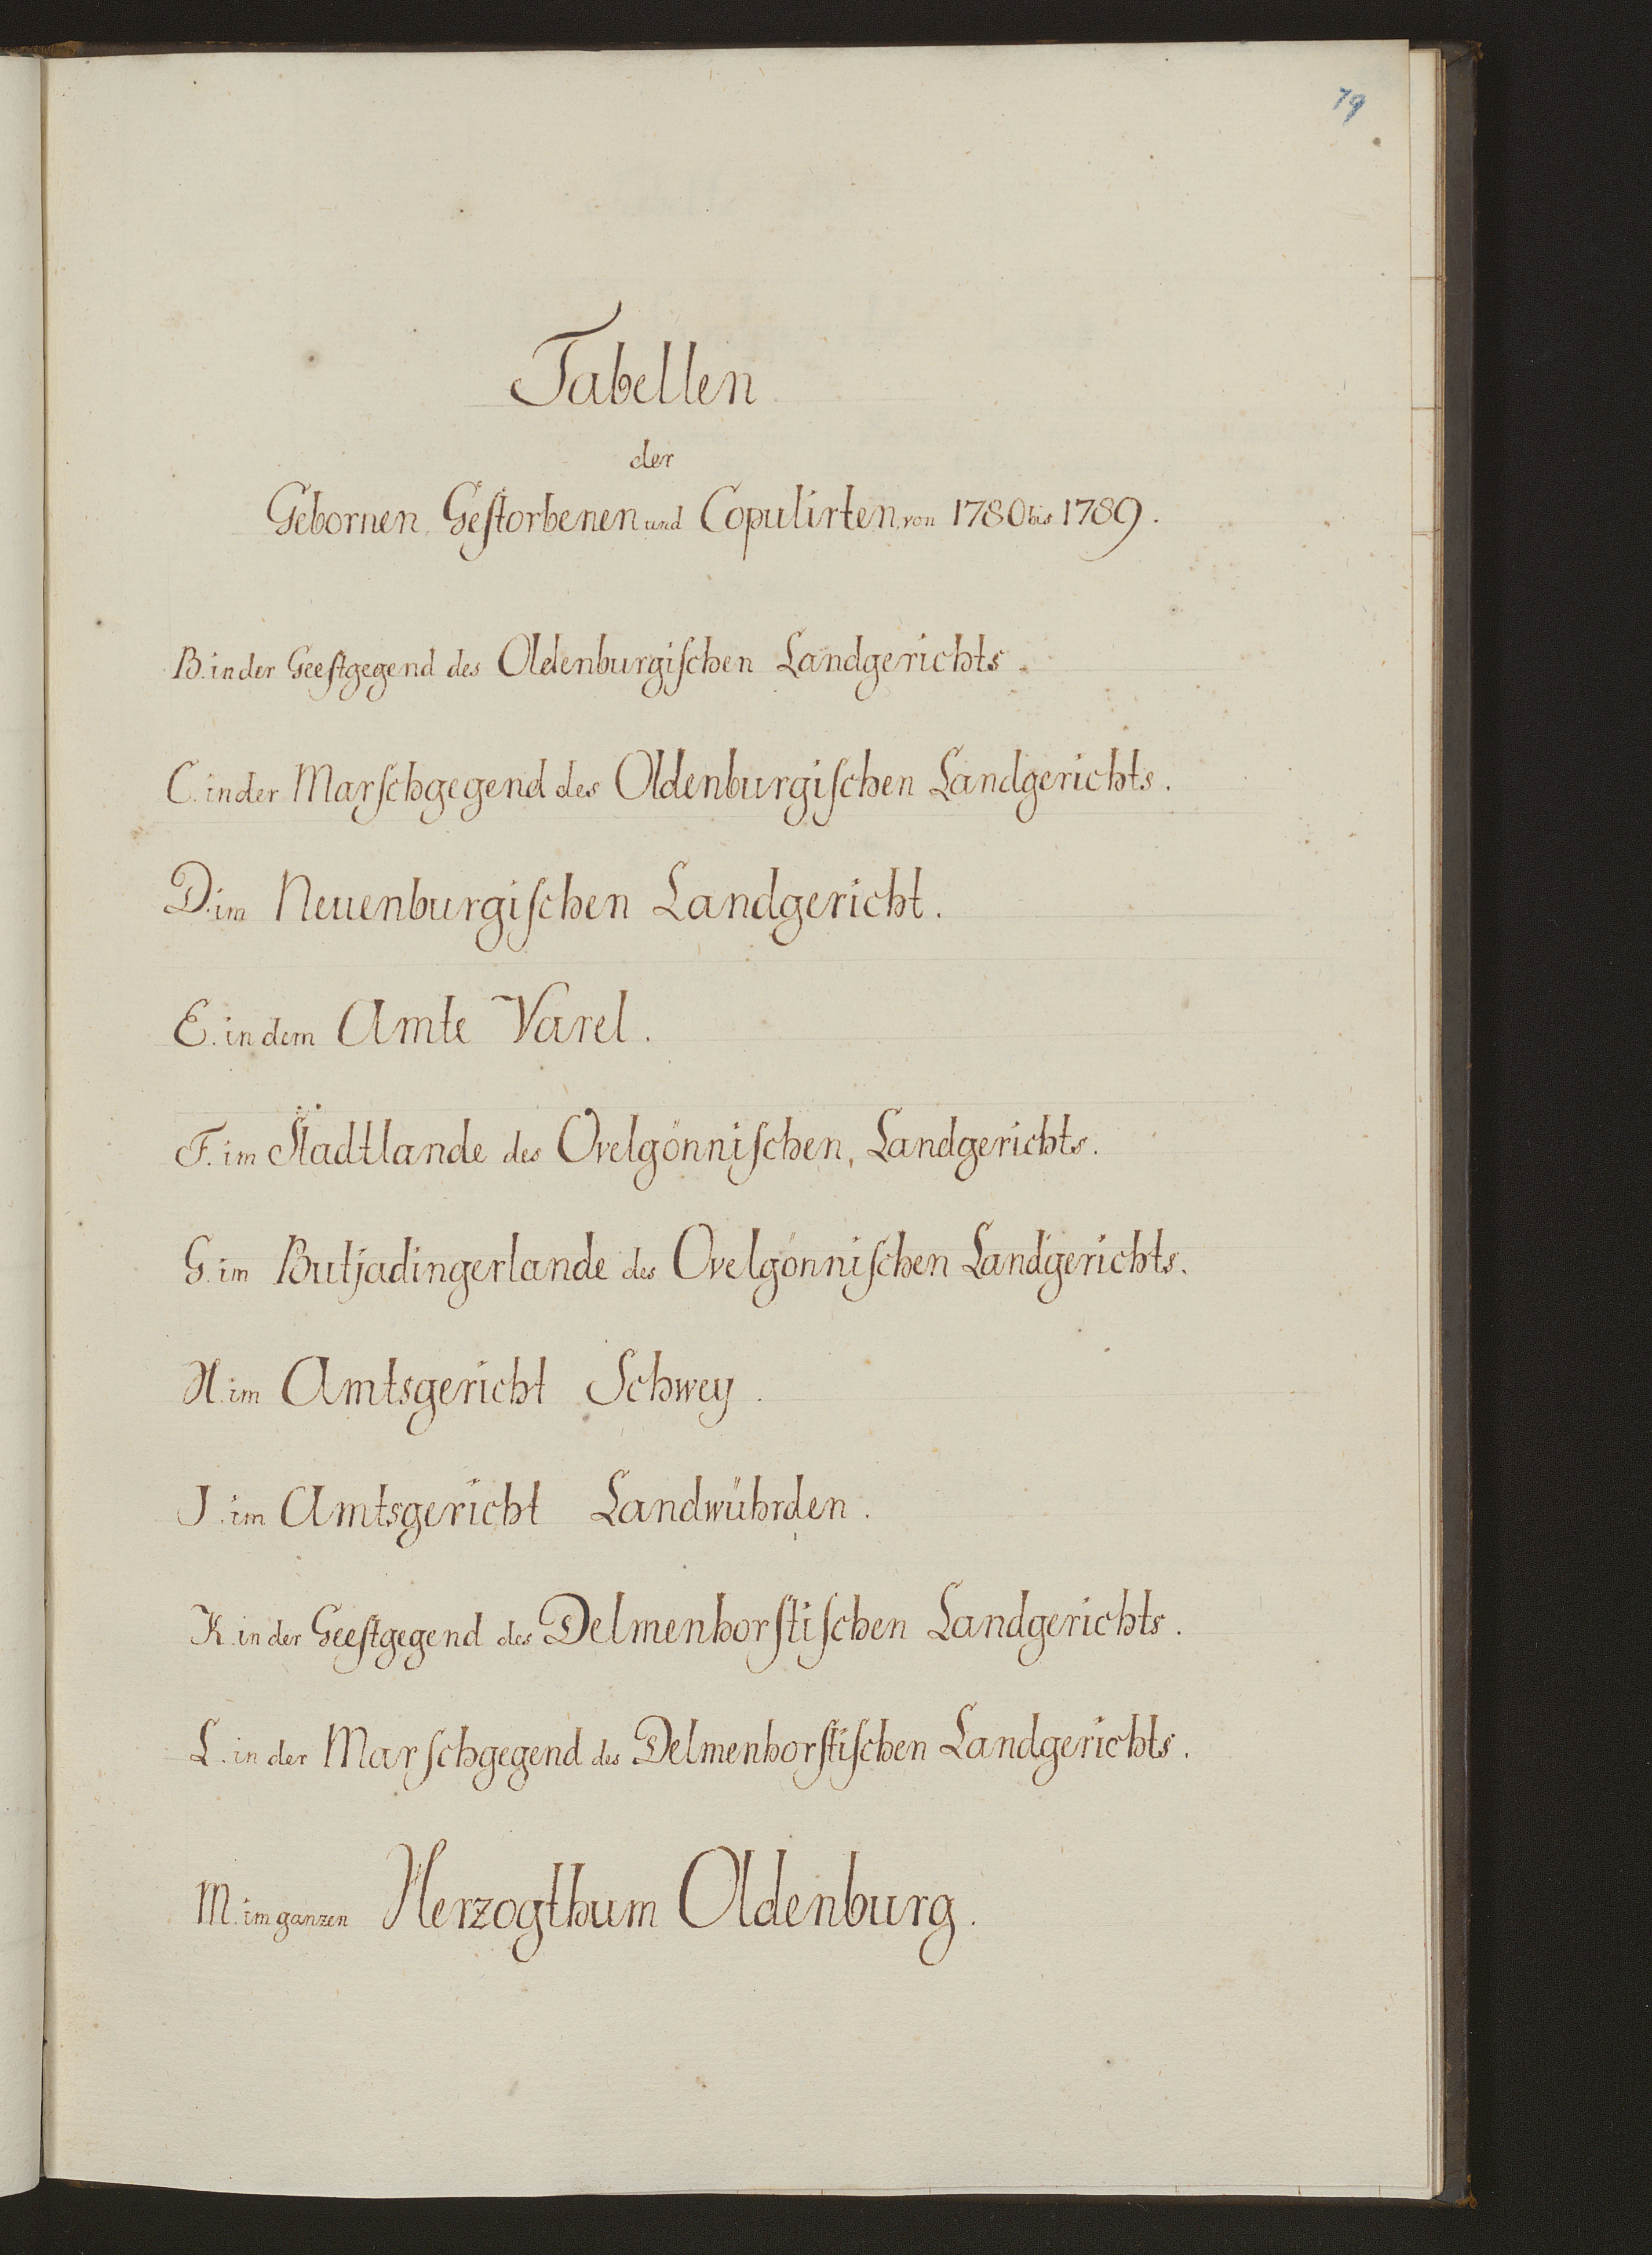 79
Tabellen
der
Gebornen, Geſtorbenen und Copulirten, von 1780 bis 1789.
B. in der Geeſtgegend des Oldenburgiſchen Landgerichts.
C. in der Marſchgegend des Oldenburgiſchen Landgerichts.
D. im Neuenburgiſchen Landgericht.
E. in dem Amte Varel.
F. im Stadtlande des Ovelgönniſchen, Landgerichts.
G. im Butjadingerlande des Ovelgönniſchen Landgerichts.
H. im Amtsgericht Schwey.
J. im Amtsgericht Landwührden.
K. in der Geeſtgegend des Delmenhorſtiſchen Landgerichts.
L. in der Marſchgegend des Delmenhorſtiſchen Landgerichts.
M. im ganzen Herzogthum Oldenburg.